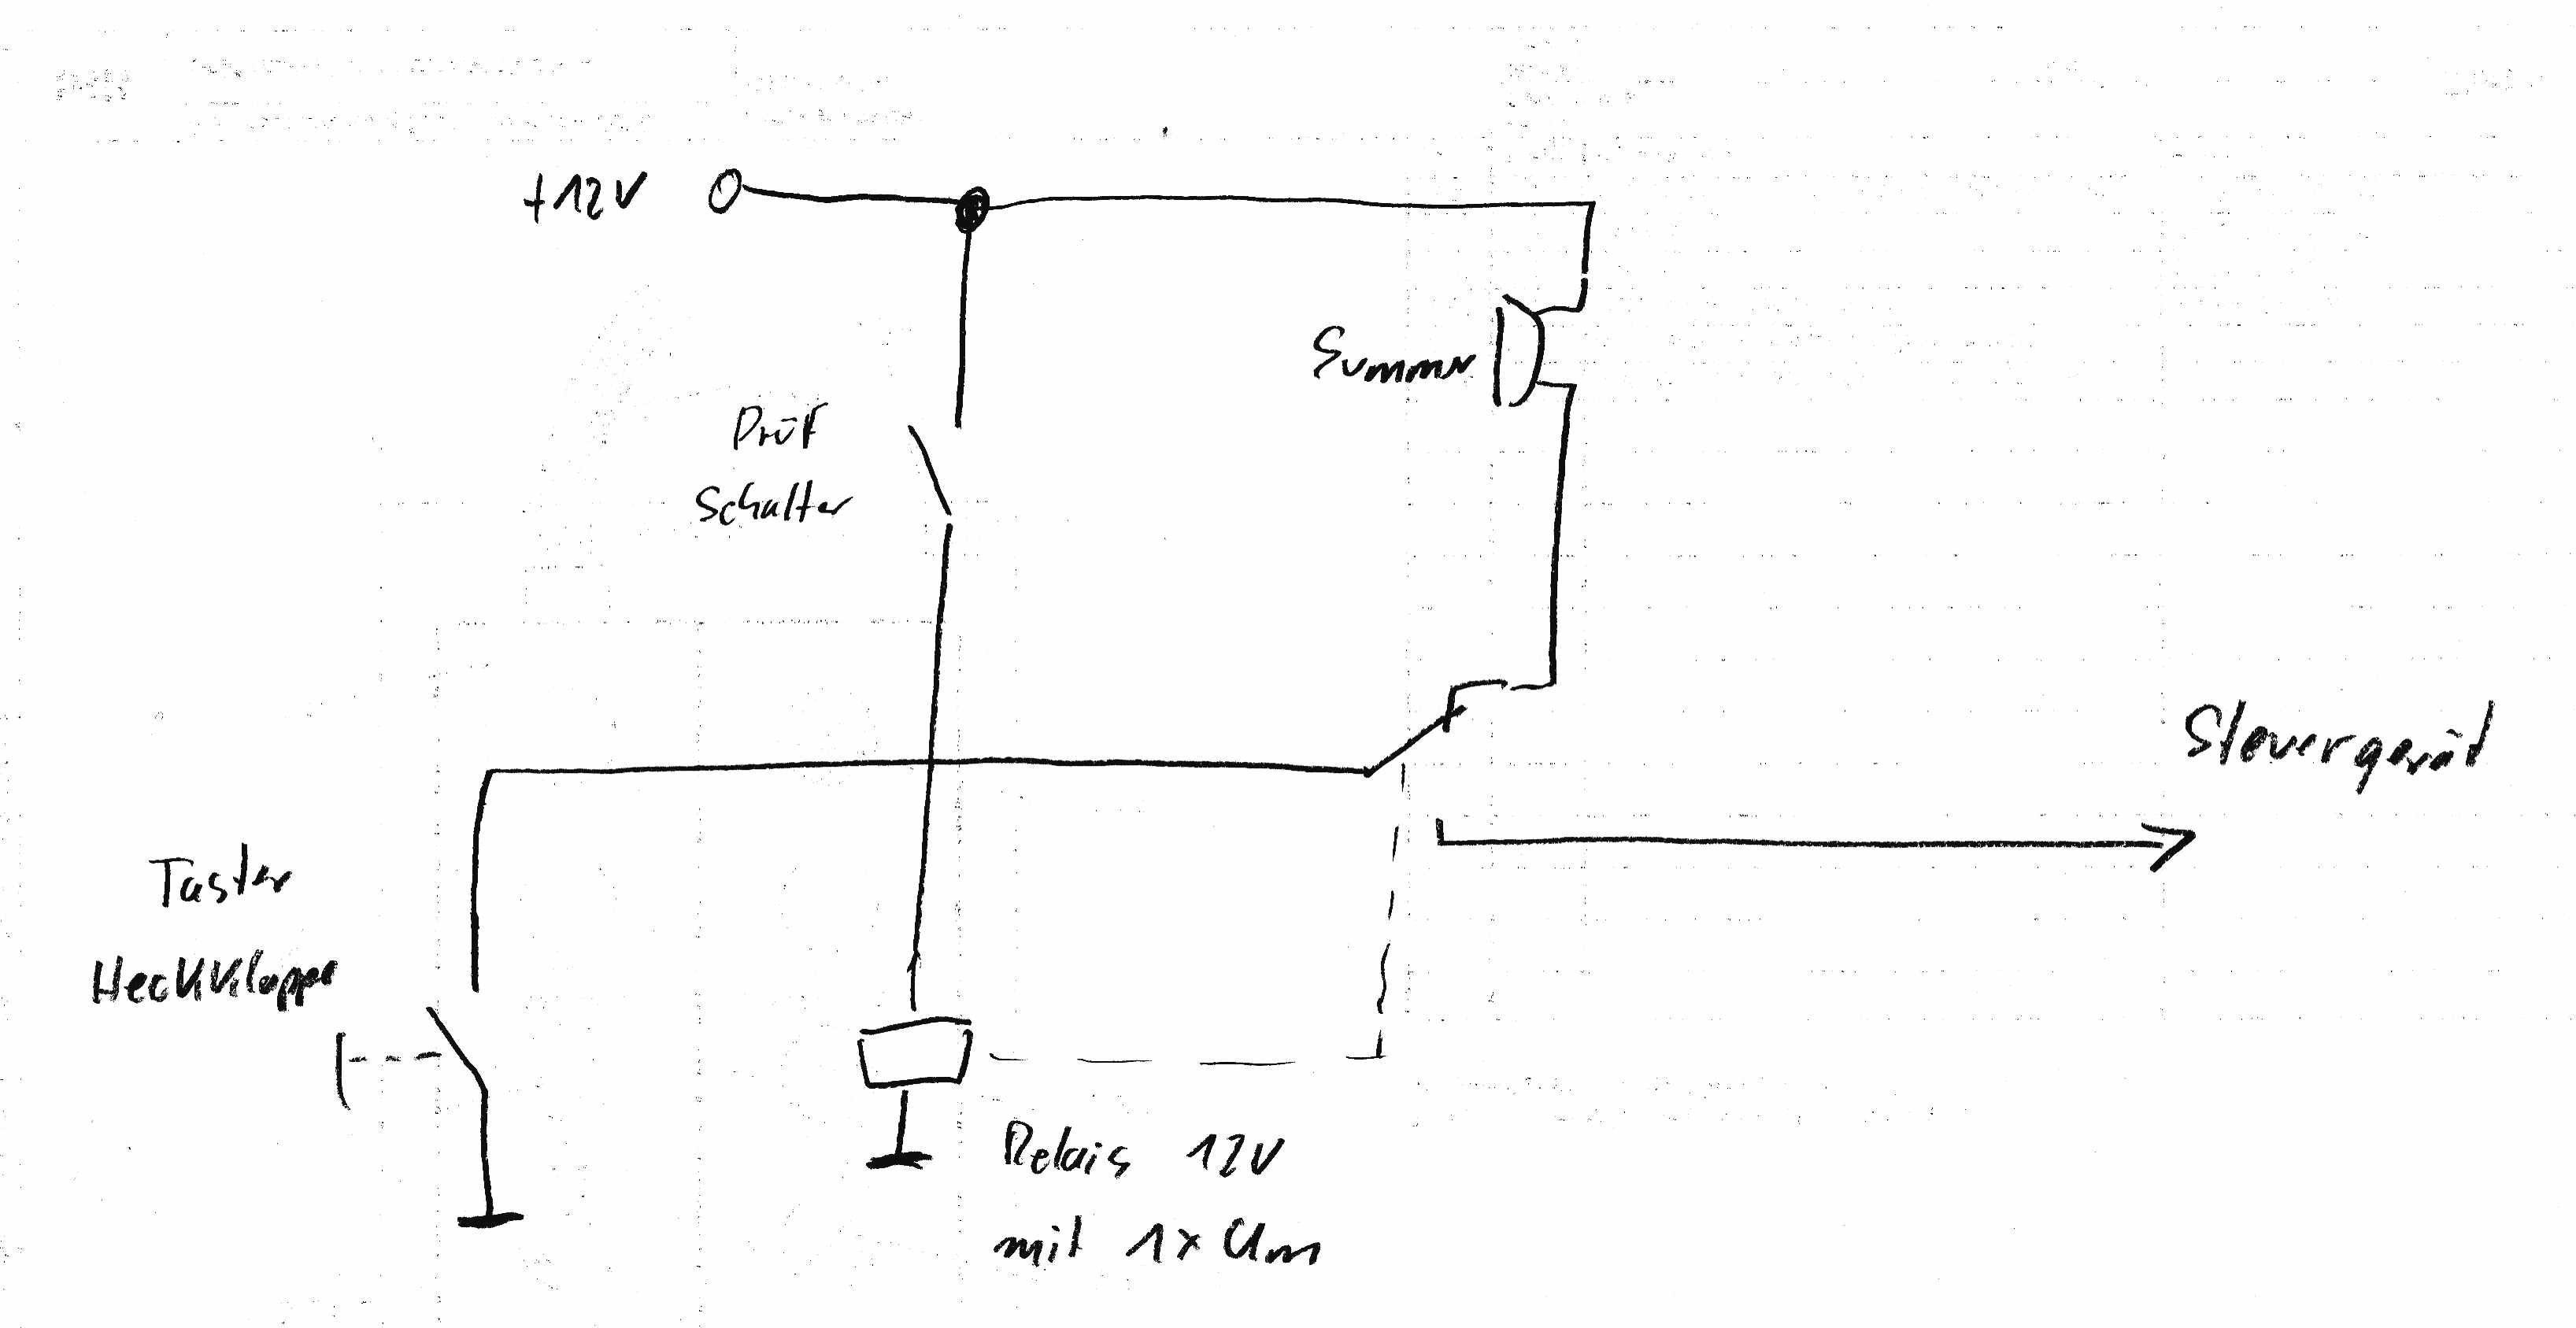 +12V
Summer
Prüf
Schalter
Steuergerät
Taster
Heckklappe
Relais 12V
mit 1x Um